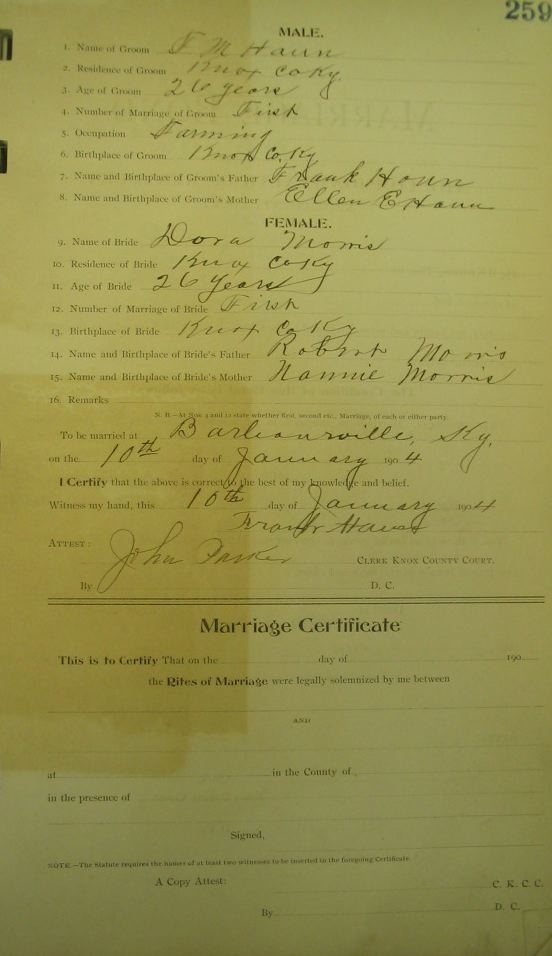 259
MALE.
1. Name of Groom F M Haun
2. Residence of Groom Knox co Ky.
3. Age of Groom 26 years
4. Number of Marriage of Groom First
5. Occupation Farming
6. Birthplace of Groom Knox Co. Ky
7. Name and Birthplace of Groom's Father Frank Haun
8. Name and Birthplace of Groom's Mother Ellen E Haun
FEMALE.
9. Name of Bride Dora Morris
10. Residence of Bride Knox co Ky
11. Age of Bride 26 years
12. Number of Marriage of Bride First
13. Birthplace of Bride Knox co Ky
14. Name and Birthplace of Bride's Father Robert Morris
15. Name and Birthplace of Bride's Mother Nannie Morris
16. Remarks
N. B.—At Nos. 4 and 12 state whether first, second etc., Marriage, of each or either party.
To be married at Barbourville, Ky.
on the 10th day of January 1904
I Certify that the above is correct to the best of my knowledge and belief.
Witness my hand, this 10th day of January 1904
Frank Haun
ATTEST:
John Parker CLERK KNOX COUNTY COURT.
By D. C.
Marriage Certificate
This is to Certify That on the day of 190
the Rites of Marriage were legally solemnized by me between
AND
at in the County of
in the presence of
Signed,
NOTE.—The Statute requires the names of at least two witnesses to be inserted in the foregoing Certificate.
A Copy Attest: C. K. C. C.
By D. C.